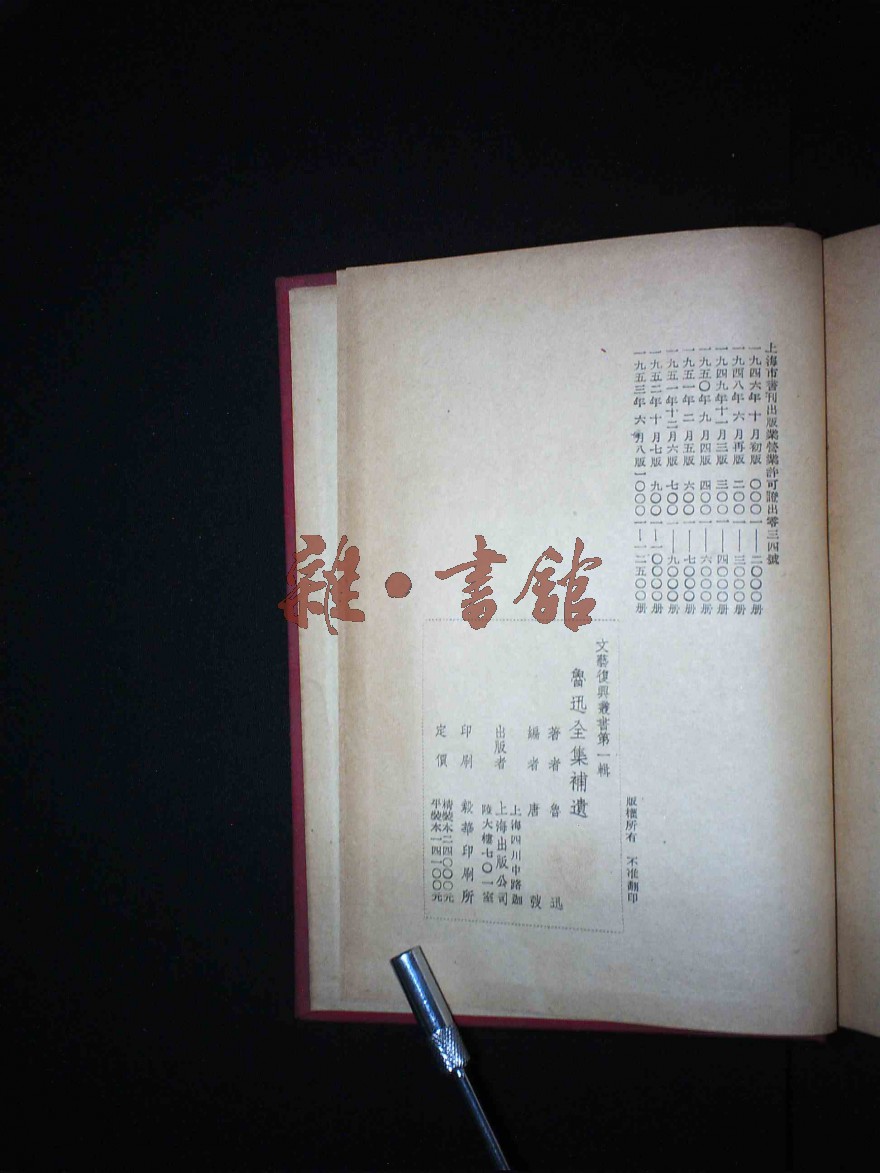 上海市書刊出版業營業許可證出零三四號
一九四六年十月初版 〇〇〇一——二〇〇〇册
一九四八年六月再版 二〇〇一——三〇〇〇册
一九四九年十一月三版 三〇〇一——四〇〇〇册
一九五〇年九月四版 四〇〇一——六〇〇〇册
一九五一年二月五版 六〇〇一——七〇〇〇册
一九五一年十二月六版 七〇〇一——九〇〇〇册
一九五二年十月七版 九〇〇一—一〇〇〇〇册
一九五三年六月八版 一〇〇〇一—一二五〇〇册
版權所有 不准翻印
文藝復興叢書第一輯
魯迅全集補遺
著者 魯迅
編者 唐弢
出版者 上海出版公司
上海四川中路迦
陵大樓七〇一室
印刷 毅華印刷所
定價 精裝本二四〇〇〇元
平裝本一四一〇〇元
雜·書館